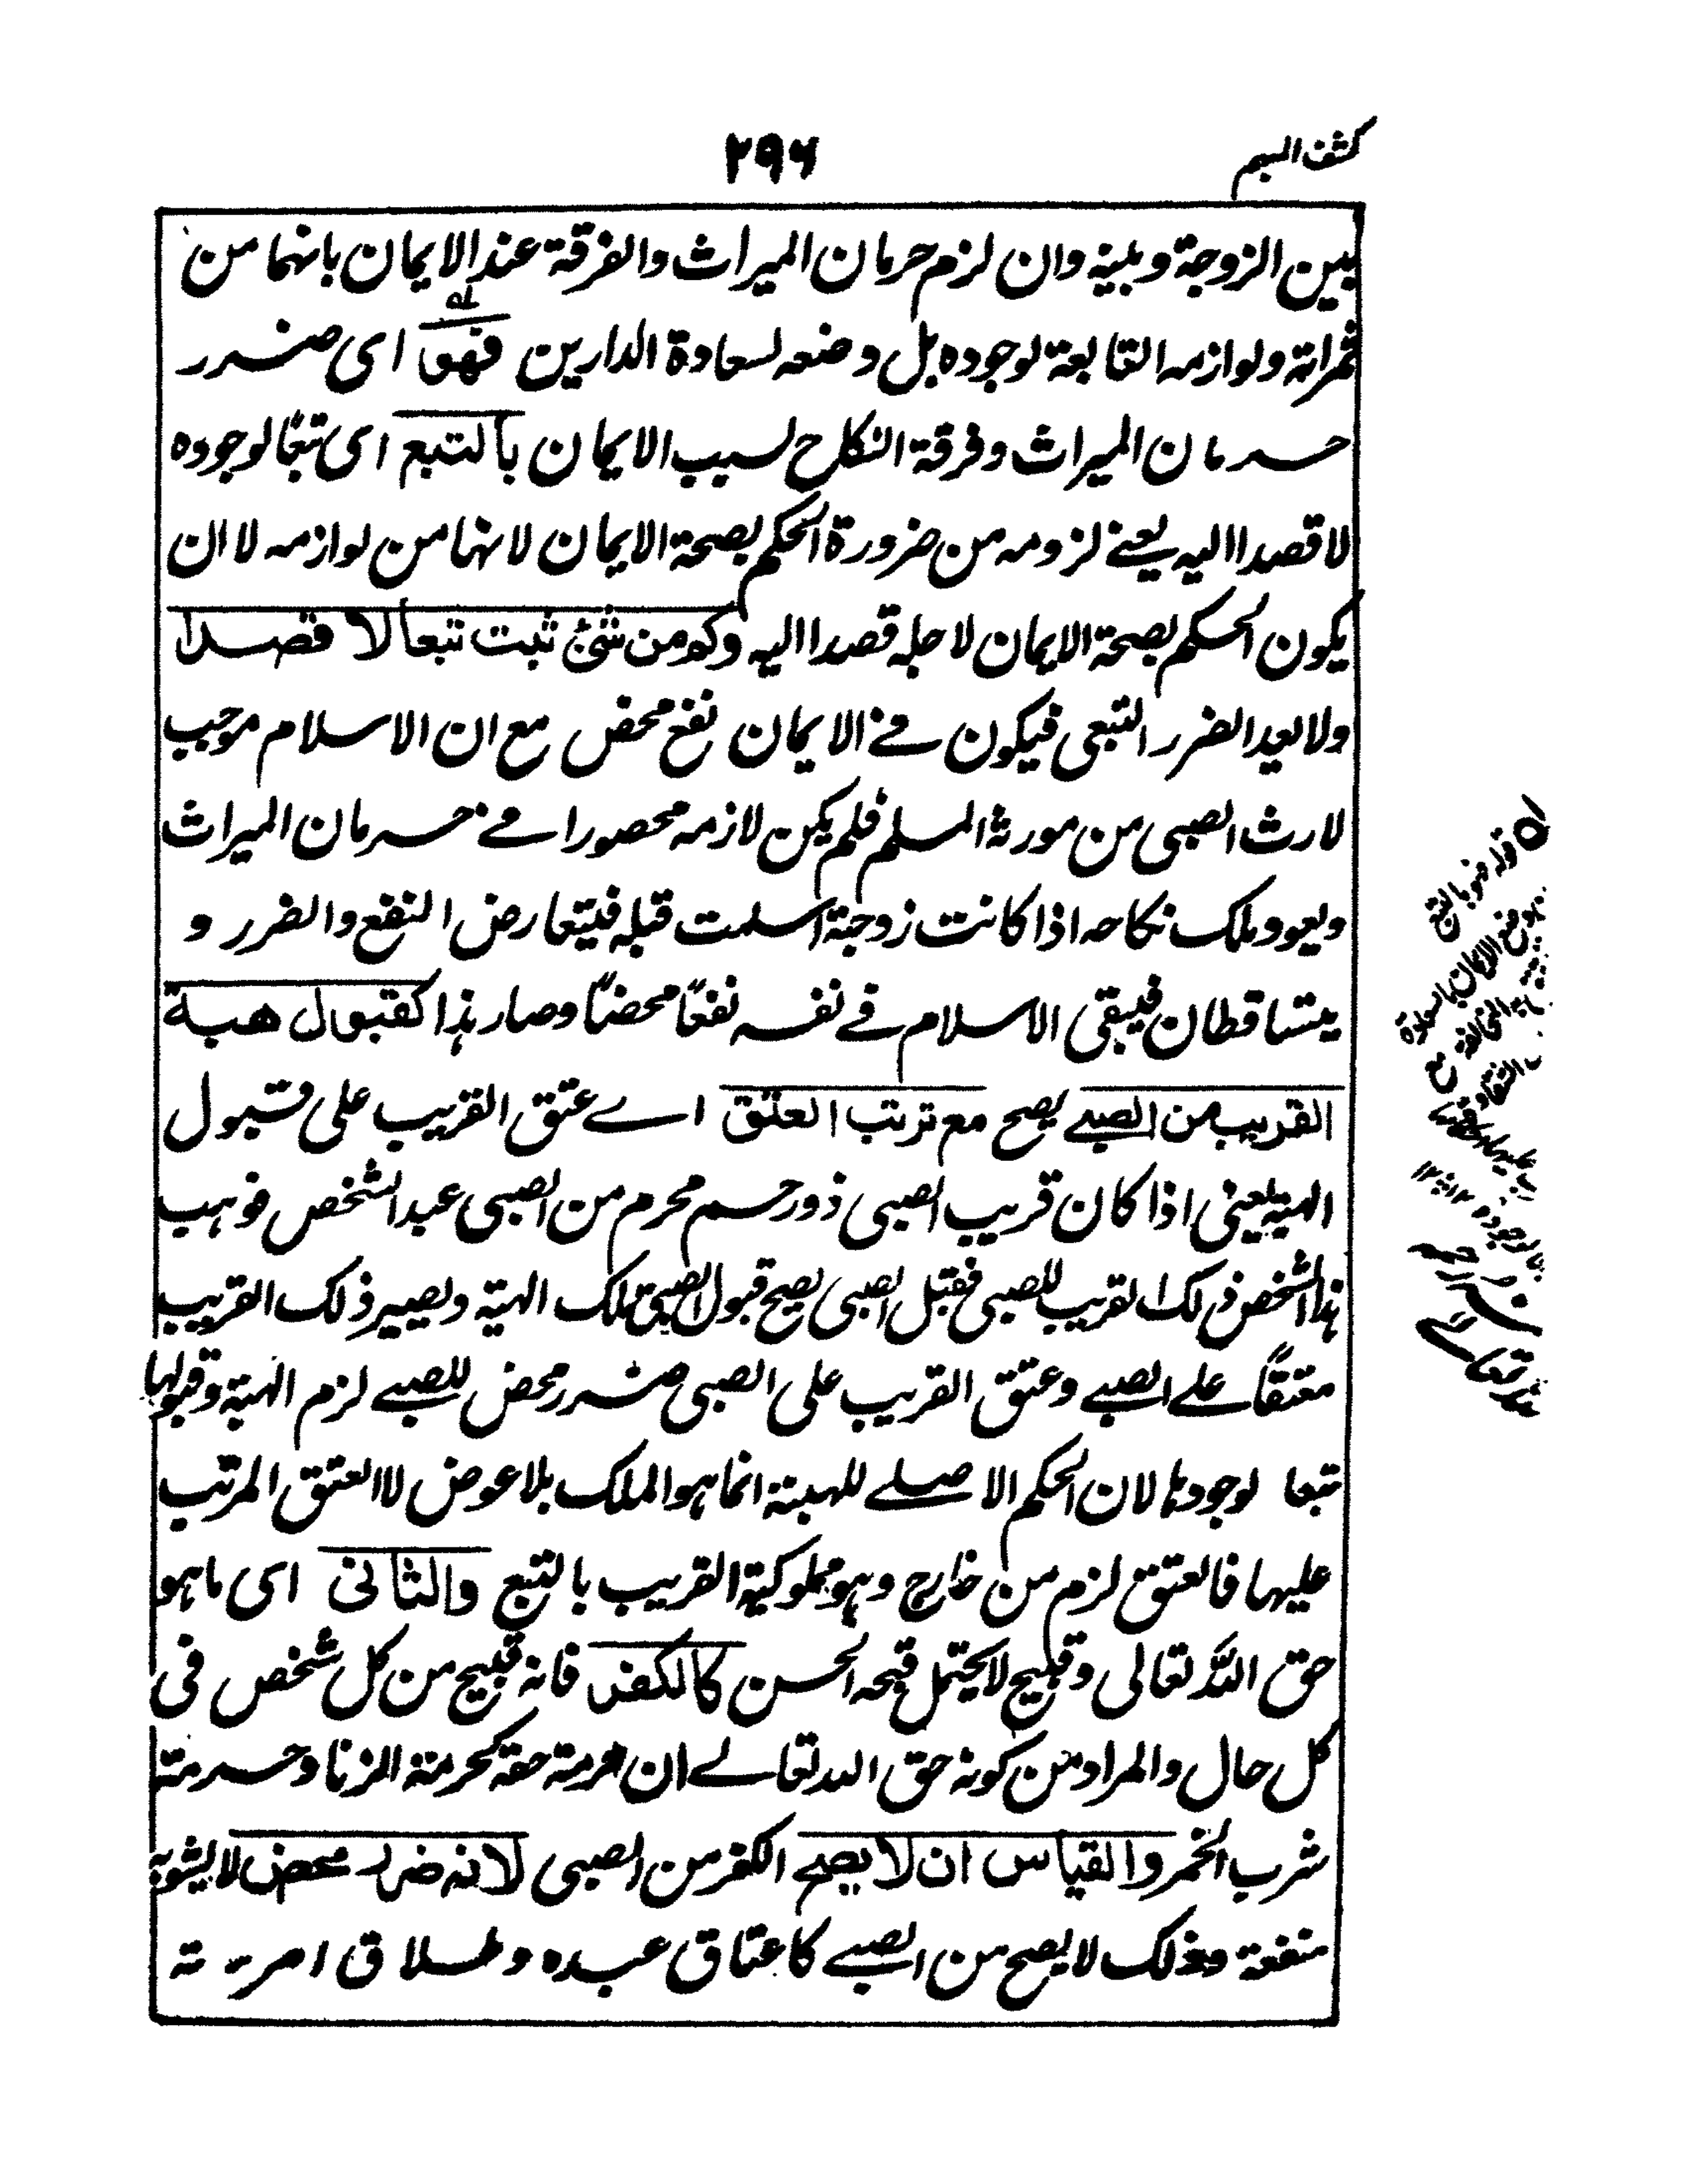 كشف المبهم
٢٩٦
بين الزوجة وبينه وان لزم حرمان الميراث والفرقة عند الايمان بانهما من
ثمراته ولوازمه التابعة لوجوده بل وضعه لسعادة الدارين فهو اى ضرر
حرمان الميراث وفرقة النكاح لسبب الايمان بالتبع اى تبعًا لوجوده
لا قصدا اليه يعنے لزومه من ضرورة الحكم بصحة الايمان لانهما من لوازمه لا ان
يكون الحكم بصحة الايمان لاجله قصدا اليه وكم من شئ ثبت تبعا لا قصدا
ولا يعد الضرر التبعى فيكون فے الايمان نفع محض مع ان الاسلام موجب
لارث الصبى من مورثه المسلم فلم يكن لازمه محصورا فے حرمان الميراث
ويعود ملك نكاحه اذا كانت زوجته اسلمت قبله فيتعارض النفع والضرر و
يتساقطان فيبقى الاسلام فے نفسه نفعًا محضًا وصار هذا كقبول هبة
القريب من الصبے يصح مع ترتب العتق اے عتق القريب على قبول
الهبة يعنى اذا كان قريب الصبى ذو رحم محرم من الصبى عبد الشخص فوهب
هذا الشخص ذلك القريب للصبى فقبل الصبى يصح قبول الصبى ملك الهبة ويصير ذلك القريب
معتقًا علے الصبے وعتق القريب على الصبى ضرر محض للصبے لزم الهبة وقبولها
تبعا لوجودها لان الحكم الاصلے للهبة انما هو الملك بلا عوض لا العتق المرتب
عليها فالعتق لزم من خارج وهو مملوكية القريب بالتبع والثانى اى ما هو
حق الله تعالى وقبيح لا يحتمل قبحه الحسن كالكفر فانه قبيح من كل شخص فى
كل حال والمراد من كونه حق الله تعالے ان حرمته حقه كحرمة الزنا وحرمة
شرب الخمر والقياس ان لا يصح الكفر من الصبى لانه ضرر محض لا يشوبه
منفعة وذلك لا يصح من الصبے كاعتاق عبده وطلاق امرته
قوله فهو بالتبع